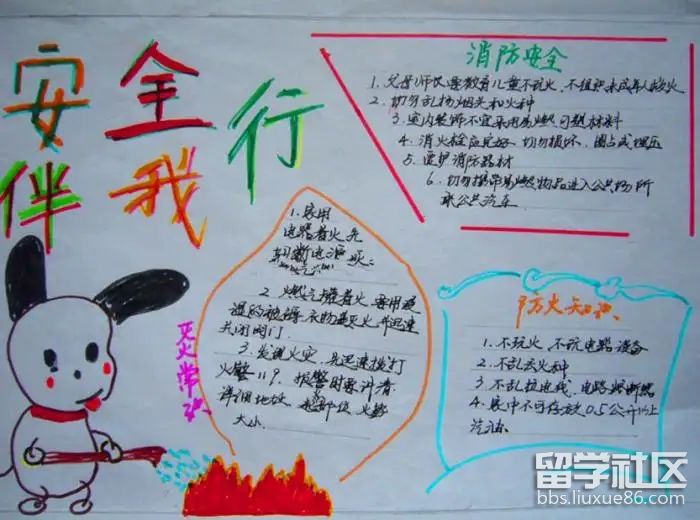 安全
伴我行
消防安全
1. 父母师长要教育儿童不玩火、不组织未成年人救火
2. 切勿乱扔烟头和火种
3. 室内装饰不宜采用易燃、可燃材料
4. 消火栓应完好、切勿损坏、圈占或埋压
5. 爱护消防器材
6. 切勿携带易燃物品进入公共场所
公共汽车
1. 家用
电路着火先
切断电源
2. 燃气罐着火、要用浸
湿的被褥、衣物盖灭火、并迅速
关闭阀门
3. 发现火灾、迅速拨打
火警119、报警时要讲清
详细地址、起部位、火势
大小
灭火常识
防火知识
1. 不玩火、不玩电路设备
2. 不乱丢火种
3. 不乱拉电线、电路
4. 家中不可存放0.5公斤以上
汽油
留学社区
bbs.liuxue86.com